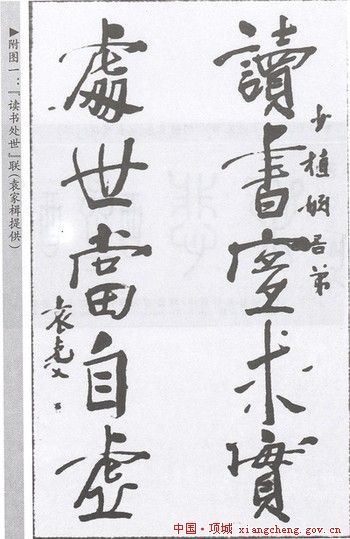 少植姻吾弟
讀書宜求實
處世當自虛
袁克文
▶附图一:『读书处世』联(袁家楫提供)
中国·项城 xiangcheng.gov.cn